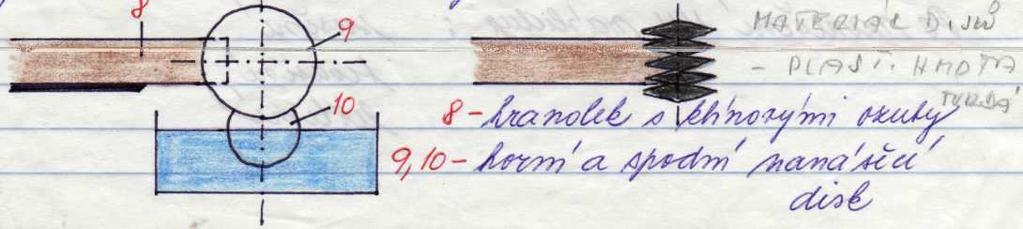 8
9
10
MATERIÁL DISKŮ
- PLAST. HMOTA
TVRDÁ
8 - hranolek s klínovými ozuby
9,10 - horní a spodní nanášecí
disk